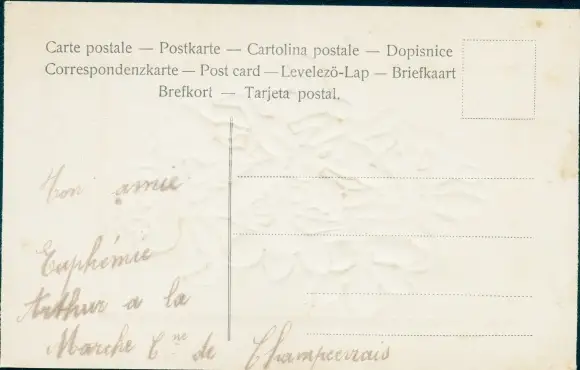 Carte postale — Postkarte — Cartolina postale — Dopisnice
Correspondenzkarte — Post card — Levelező-Lap — Briefkaart
Brefkort — Tarjeta postal.
Ton amie
Euphémie
Arthur a la
Marche Cne de Champcervais